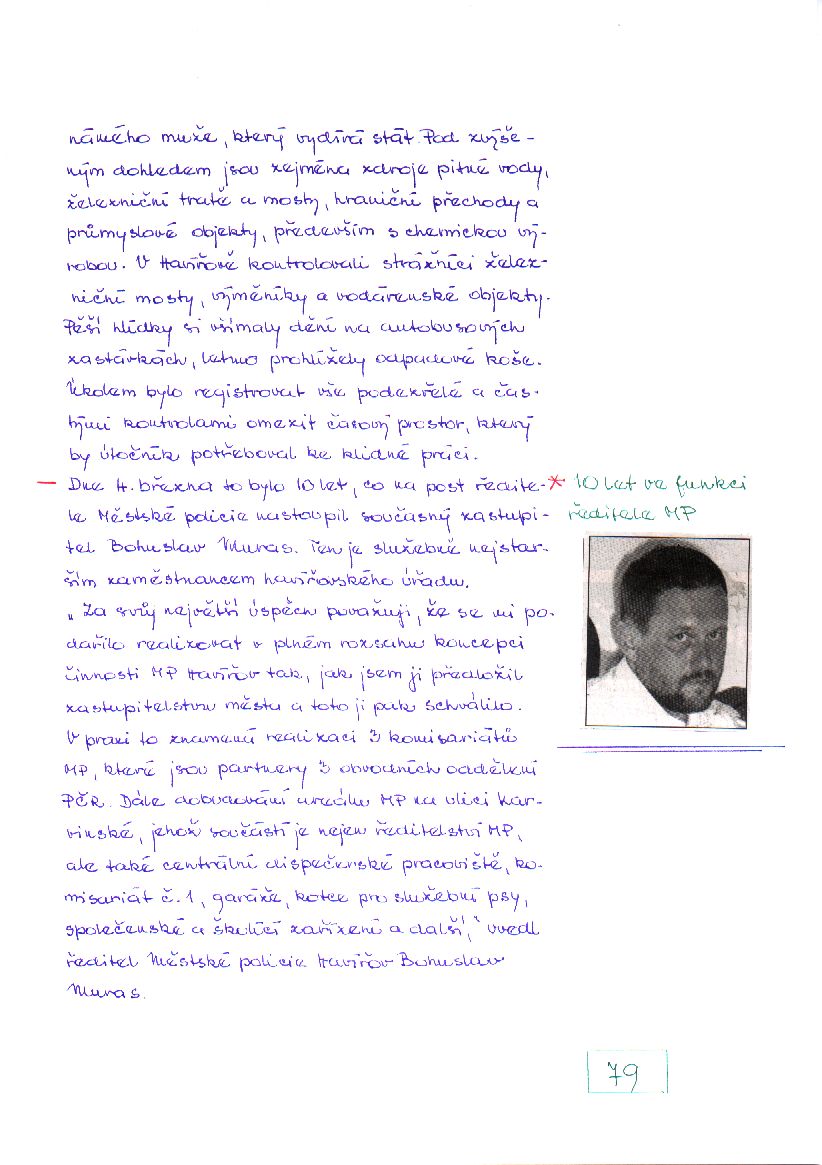 námého muže, který vydírá stát. Pod zvýše-
ným dohledem jsou zejména zdroje pitné vody,
železniční tratě a mosty, hraniční přechody a
průmyslové objekty, především s chemickou vý-
robou. V Havířově kontrolovali strážníci želez-
niční mosty, výměníky a vodárenské objekty.
Pěší hlídky si všímaly dění na autobusových
zastávkách, letmo prohlížely odpadové koše.
Úkolem bylo registrovat vše podezřelé a čas-
tými kontrolami omezit časový prostor, který
by útočník potřeboval ke klidné práci.
— Dne 4. března to bylo 10 let, co na post ředite-
le Městské policie nastoupil současný zastupi-
tel Bohuslav Muras. Ten je služebně nejstar-
ším zaměstnancem havířovského úřadu.
„Za svůj největší úspěch považuji, že se mi po-
dařilo realizovat v plném rozsahu koncepci
činnosti MP Havířov tak, jak jsem ji předložil
zastupitelstvu města a toto ji pak schválilo.
V praxi to znamená realizaci 3 komisariátů
MP, které jsou partnery 3 obvodních oddělení
PČR. Dále dobudování areálu MP na ulici Kar-
vinské, jehož součástí je nejen ředitelství MP,
ale také centrální dispečerské pracoviště, ko-
misariát č. 1, garáže, kotce pro služební psy,
společenské a školící zařízení a další,“ uvedl
ředitel Městské policie Havířov Bohuslav
Muras.
* 10 let ve funkci
ředitele MP
79